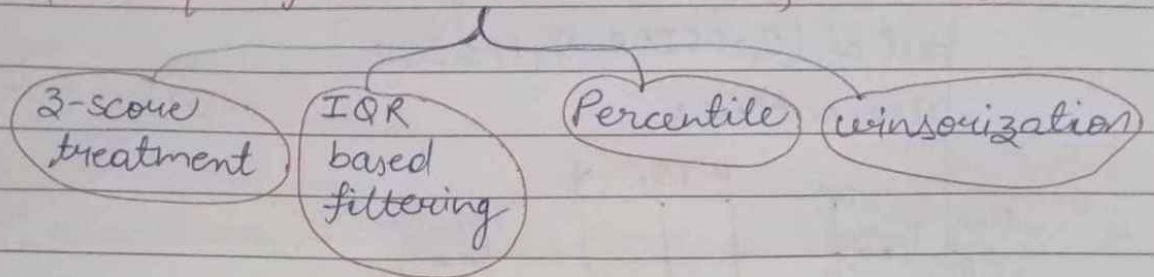 Z-score
treatment
IQR
based
filtering
Percentile
winsorization